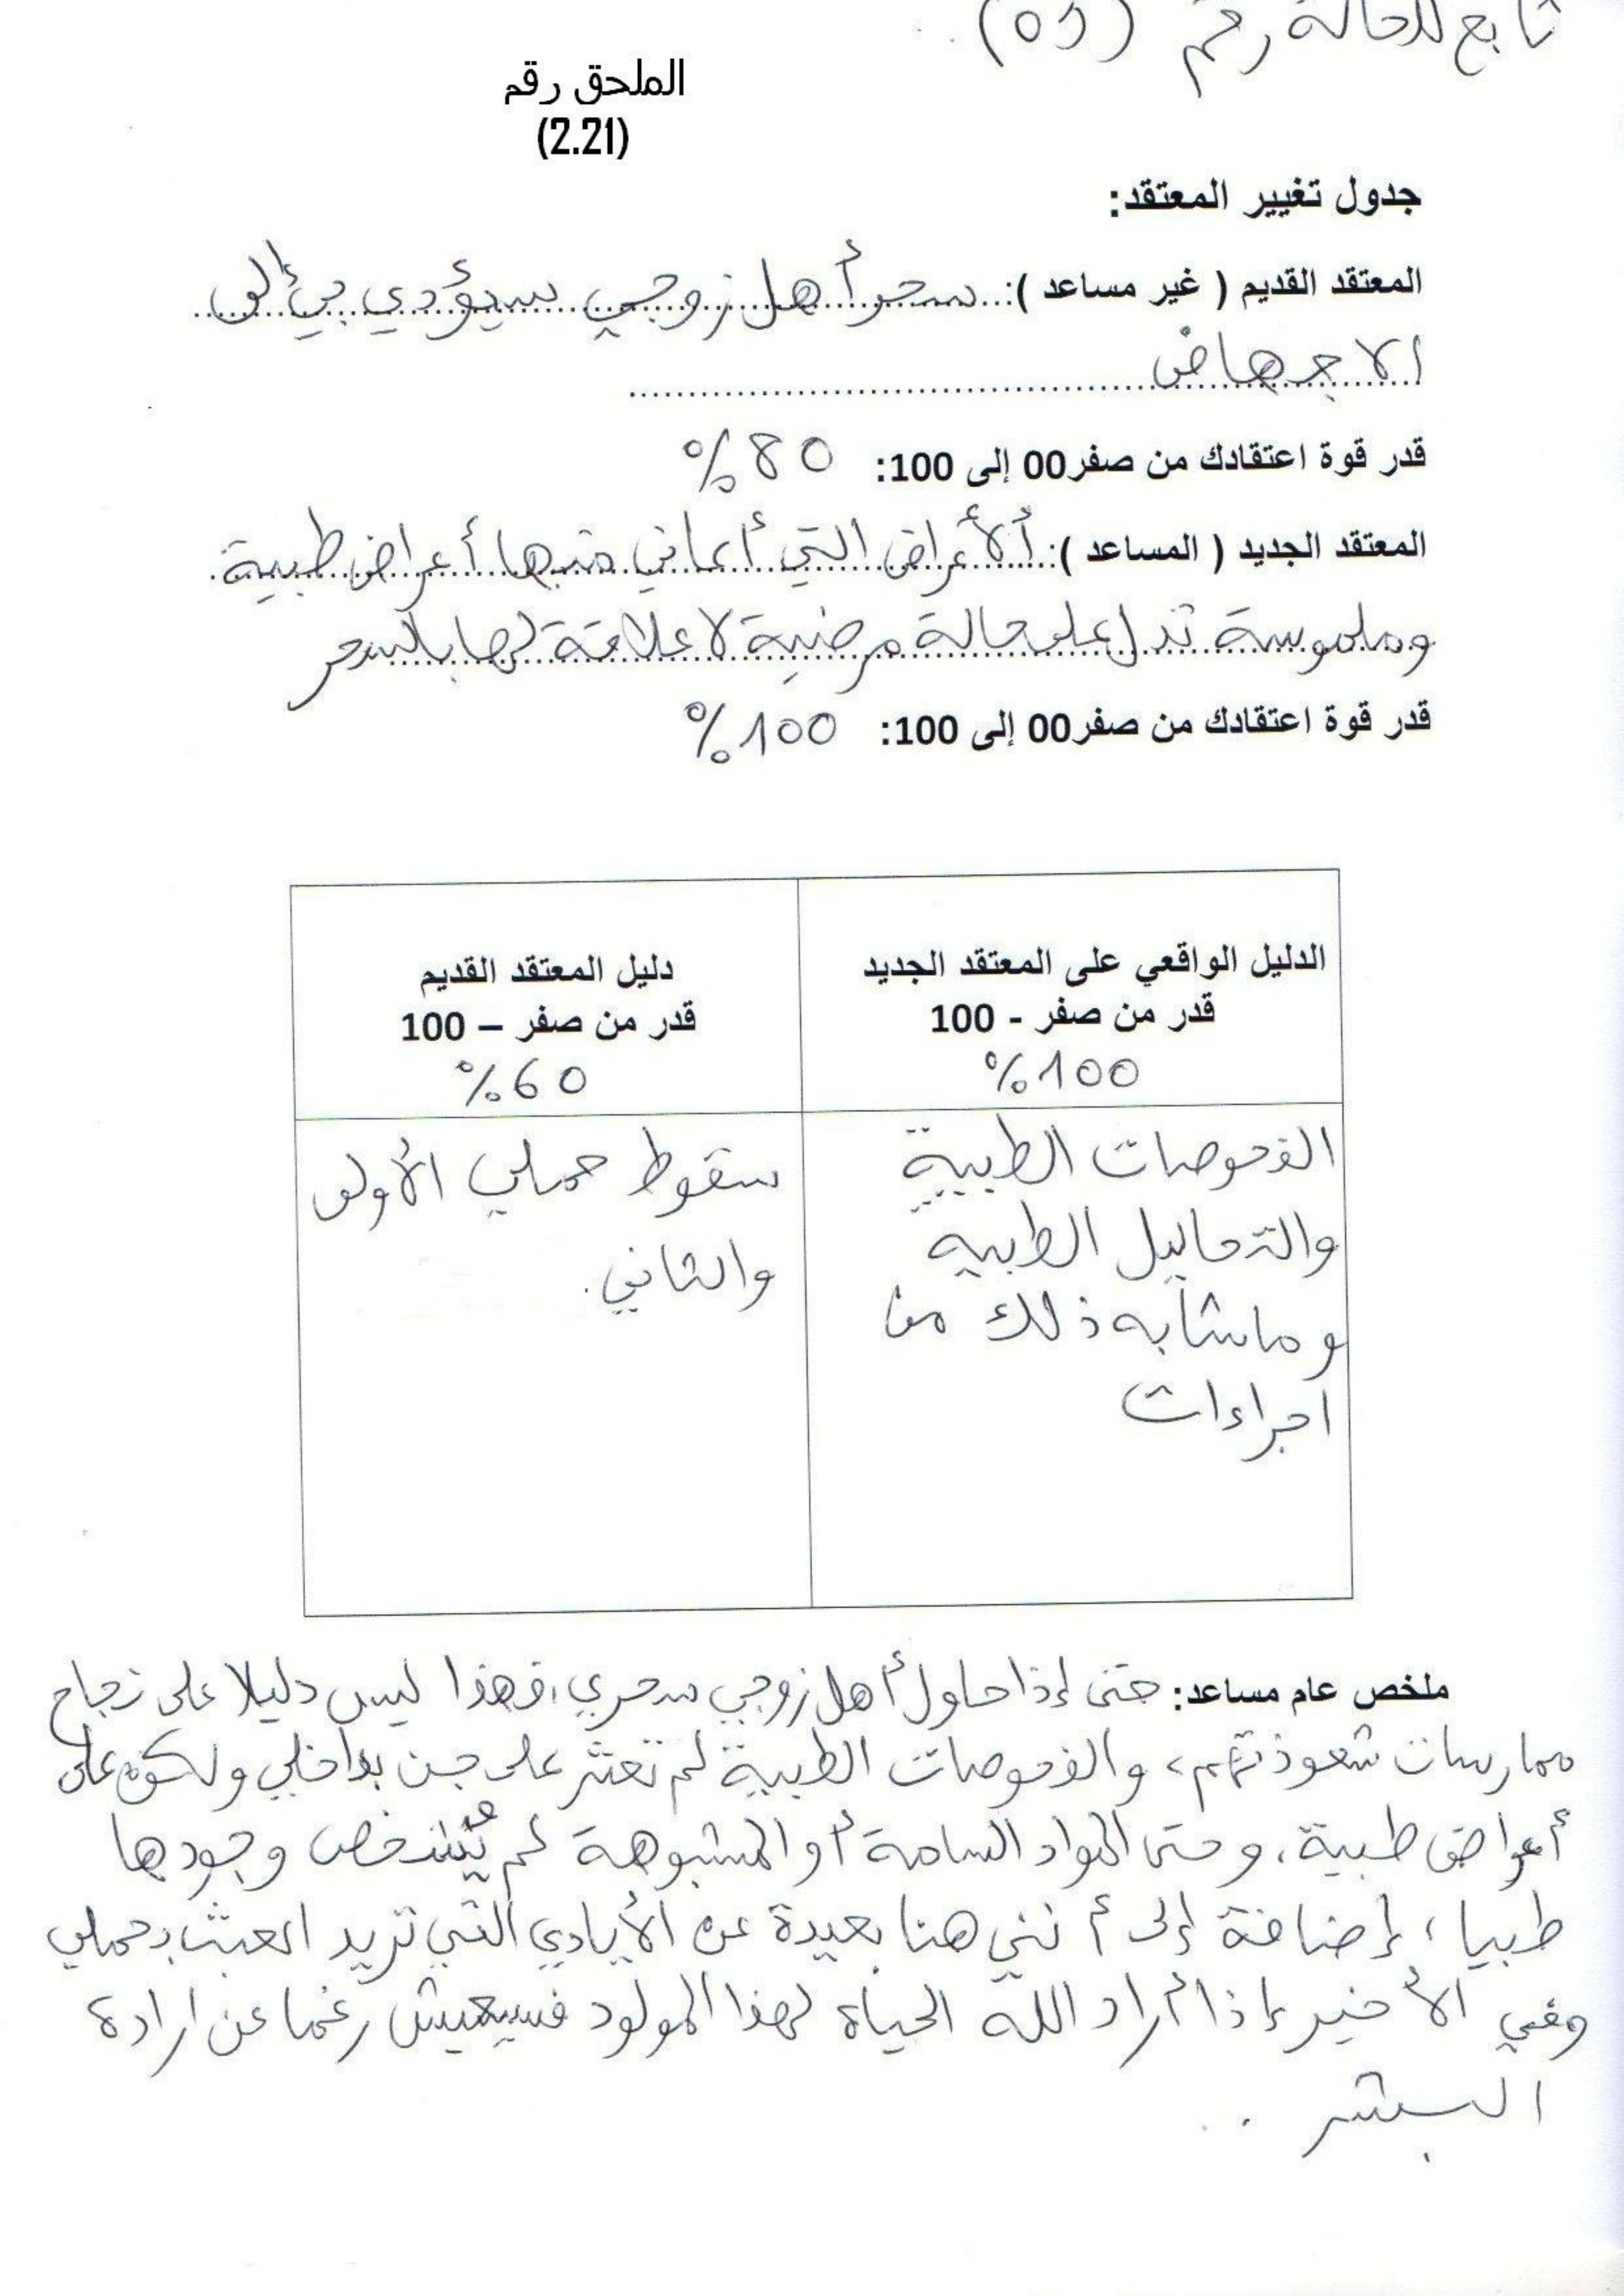 تابع للحالة رقم (05).
الملحق رقم
(2.21)
جدول تغيير المعتقد:
المعتقد القديم ( غير مساعد ): سحر أهل زوجي سيؤدي بي إلى
الاجهاض
قدر قوة اعتقادك من صفر00 إلى 100: 80%
المعتقد الجديد ( المساعد ): ألأعراض التي أعاني منها أعراض طبية
وملموسة تدل على حالة مرضية لا علاقة لها بالسحر
قدر قوة اعتقادك من صفر00 إلى 100: 100%
الدليل الواقعي على المعتقد الجديد
قدر من صفر - 100
100%
الفحوصات الطبية
والتحاليل الطبية
وماشابه ذلك من
اجراءات
دليل المعتقد القديم
قدر من صفر – 100
60%
سقوط حملي الأول
والثاني.
ملخص عام مساعد: حتى إذا حاول أهل زوجي سحري، فهذا ليس دليلا على نجاح
ممارسات شعوذتهم، والفحوصات الطبية لم تعثر على جن بداخلي ولكن على
أعراض طبية، وحتى المواد السامة أو المشبوهة لم يُشخص وجودها
طبيا، إضافة إلى أنني هنا بعيدة عن الأيادي التي تريد العبث بحملي
وفي الأخير إذا أراد الله الحياة لهذا المولود فسيعيش رغما عن ارادة
البشر.